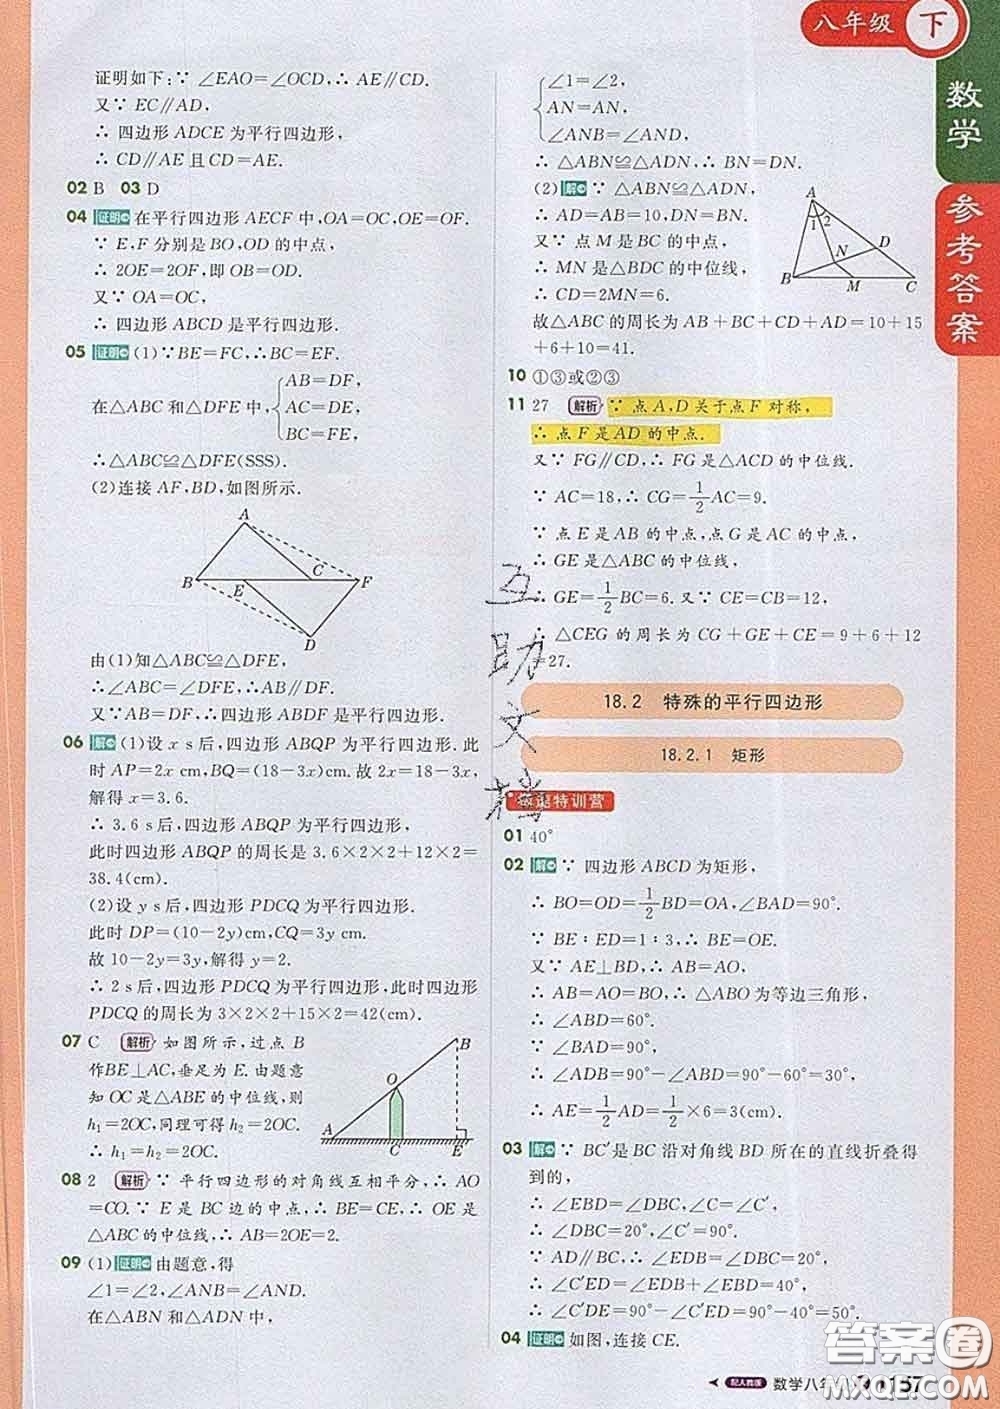 八年级 下
数学
参考答案
证明如下:∵ ∠EAO=∠OCD,∴ AE∥CD.
又∵ EC∥AD,
∴ 四边形 ADCE 为平行四边形,
∴ CD∥AE 且 CD=AE.
02 B 03 D
04 证明 在平行四边形 AECF 中,OA=OC,OE=OF.
∵ E,F 分别是 BO,OD 的中点,
∴ 2OE=2OF,即 OB=OD.
又∵ OA=OC,
∴ 四边形 ABCD 是平行四边形.
05 证明 (1)∵BE=FC,∴BC=EF.
在△ABC 和△DFE 中,
AB=DF,
AC=DE,
BC=FE,
∴△ABC≌△DFE(SSS).
(2)连接 AF,BD,如图所示.
A
B E C F
D
由(1)知△ABC≌△DFE,
∴∠ABC=∠DFE,∴AB∥DF.
又∵AB=DF,∴四边形 ABDF 是平行四边形.
06 解 (1)设 x s后,四边形 ABQP 为平行四边形.此
时 AP=2x cm,BQ=(18−3x)cm.故 2x=18−3x,
解得 x=3.6.
∴ 3.6 s后,四边形 ABQP 为平行四边形,
此时四边形 ABQP 的周长是 3.6×2×2+12×2=
38.4(cm).
(2)设 y s后,四边形 PDCQ 为平行四边形.
此时 DP=(10−2y)cm,CQ=3y cm.
故 10−2y=3y,解得 y=2.
∴ 2 s后,四边形 PDCQ 为平行四边形,此时四边形
PDCQ 的周长为 3×2×2+15×2=42(cm).
07 C 解析 如图所示,过点 B
作BE⊥AC,垂足为 E.由题意
知 OC 是△ABE 的中位线,则
h₁=2OC,同理可得 h₂=2OC.
∴ h₁=h₂=2OC.
B
O
A C E
08 2 解析 ∵ 平行四边形的对角线互相平分,∴ AO
=CO.∵ E 是 BC 边的中点,∴ BE=CE,∴ OE 是
△ABC 的中位线,∴ AB=2OE=2.
09 (1) 证明 由题意,得
∠1=∠2,∠ANB=∠AND.
在△ABN 和△ADN 中,
∠1=∠2,
AN=AN,
∠ANB=∠AND,
∴ △ABN≌△ADN,∴ BN=DN.
(2) 解 ∵ △ABN≌△ADN,
∴ AD=AB=10,DN=NB.
又∵ 点 M 是 BC 的中点,
∴ MN 是△BDC 的中位线,
∴ CD=2MN=6.
故△ABC 的周长为 AB+BC+CD+AD=10+15
+6+10=41.
A
1 2
N D
B M C
10 ①③或②③
11 27 解析 ∵ 点 A,D 关于点 F 对称,
∴ 点 F 是 AD 的中点.
又∵ FG∥CD,∴ FG 是△ACD 的中位线.
∵ AC=18,∴ CG=1/2AC=9.
∵ 点 E 是 AB 的中点,点 G 是 AC 的中点,
∴ GE 是△ABC 的中位线,
∴ GE=1/2BC=6.又∵ CE=CB=12,
∴ △CEG 的周长为 CG+GE+CE=9+6+12
=27.
18.2 特殊的平行四边形
18.2.1 矩形
特训营
01 40°
02 解 ∵ 四边形 ABCD 为矩形,
∴ BO=OD=1/2BD=OA,∠BAD=90°.
∵ BE∶ED=1∶3,∴ BE=OE.
又∵ AE⊥BD,∴ AB=AO,
∴ AB=AO=BO,∴ △ABO 为等边三角形,
∴ ∠ABD=60°.
∵ ∠BAD=90°,
∴ ∠ADB=90°−∠ABD=90°−60°=30°,
∴ AE=1/2AD=1/2×6=3(cm).
03 解 ∵ BC′是 BC 沿对角线 BD 所在的直线折叠得
到的,
∴ ∠EBD=∠DBC,∠C=∠C′,
∴ ∠DBC=20°,∠C′=90°.
∵ AD∥BC,∴ ∠EDB=∠DBC=20°,
∴ ∠C′ED=∠EDB+∠EBD=40°,
∴ ∠C′DE=90°−∠C′ED=90°−40°=50°.
04 证明 如图,连接 CE.
互助文档
答案圈
配人教版 数学八年